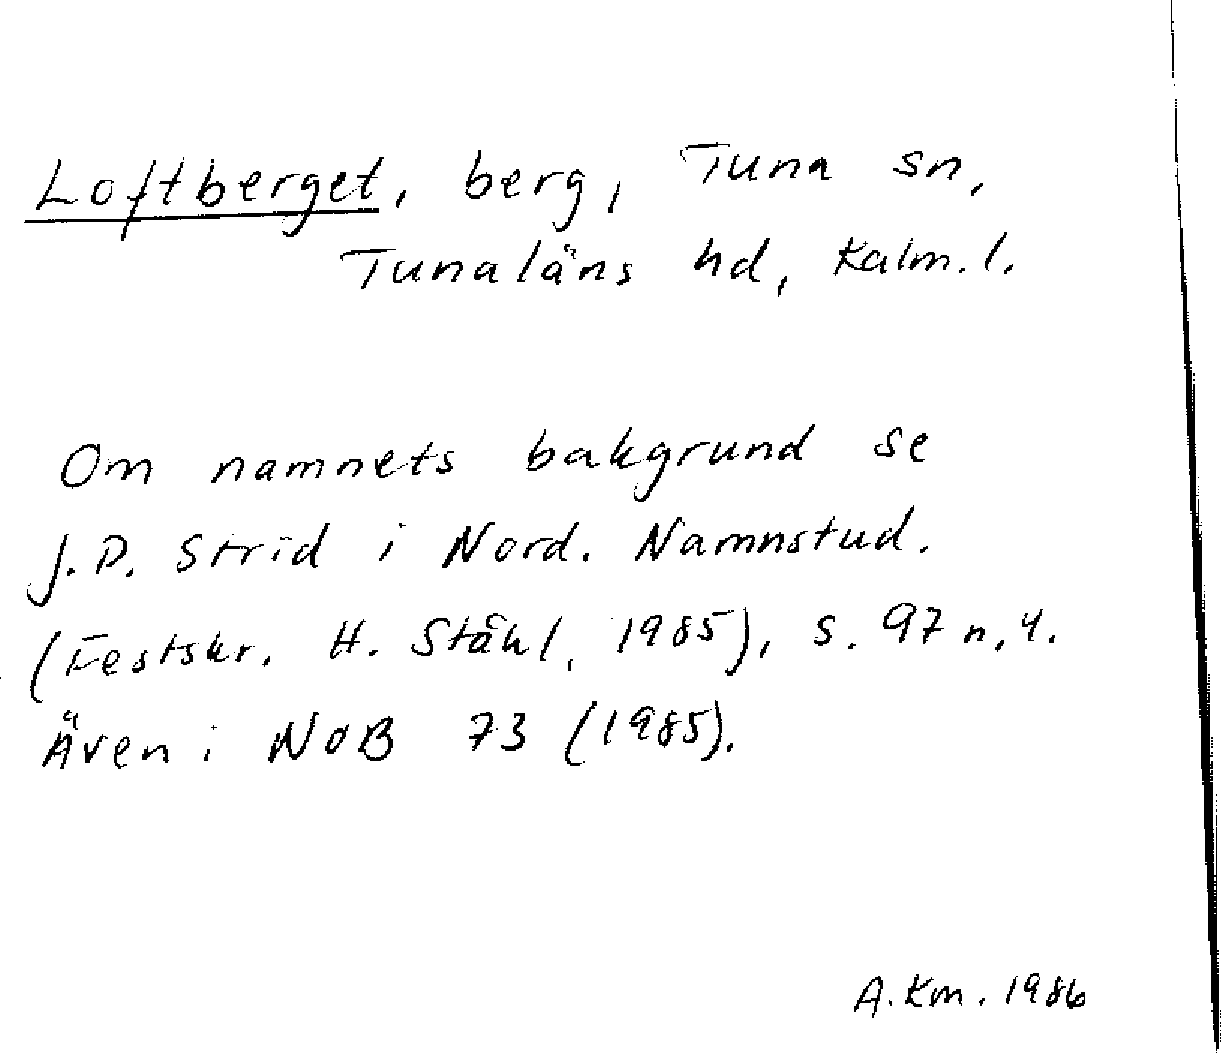 Loftberget, berg, Tuna sn,
Tunaläns hd, Kalm. l.
Om namnets bakgrund se
J.P. Strid i Nord. Namnstud.
(Festskr. H. Ståhl, 1985), s. 97 n, 4.
Även i NoB 73 (1985).
A. Km. 1986